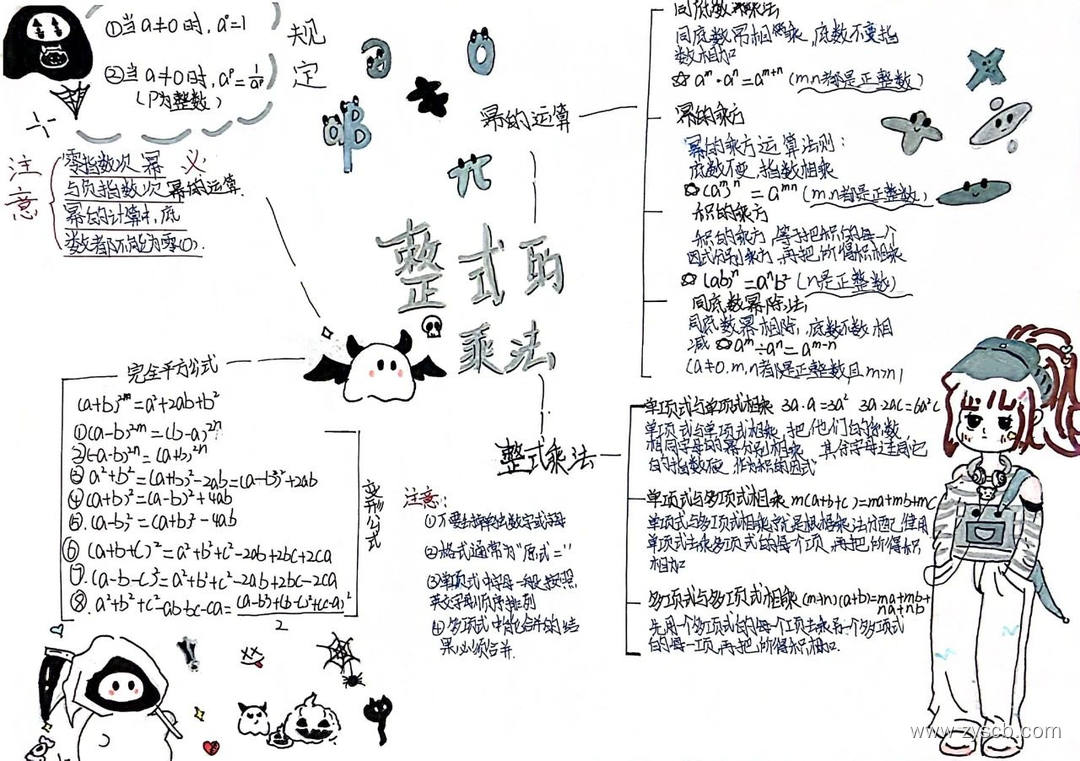 ①当a≠0时,a⁰=1
②当a≠0时,aᵖ=1/aᵖ
(P为整数)
规定
注意
零指数次幂 义
与负指数次幂的运算.
幂的计算中,底
数者都不能为零(0).
整式的
乘法
幂的运算
同底数幂乘法
同底数幂相乘,底数不变指
数相加
aᵐ·aⁿ=aᵐ⁺ⁿ(m,n都是正整数)
幂的乘方
幂的乘方运算法则:
底数不变,指数相乘
(aᵐ)ⁿ=aᵐⁿ(m,n都是正整数)
积的乘方
积的乘方,等于把积的每一个
因式分别乘方,再把所得积相乘
(ab)ⁿ=aⁿb²(n是正整数)
同底数幂除法
同底数幂相除,底数不数相
减 aᵐ÷aⁿ=aᵐ⁻ⁿ
(a≠0.m,n都是正整数且m>n)
完全平方公式
(a+b)²ᵐ=a²+2ab+b²
①(a-b)²ᵐ=(b-a)²ⁿ
②(-a-b)²ⁿ=(a+b)²ⁿ
③a²+b²=(a+b)²-2ab=(a-b)²+2ab
④(a+b)²=(a-b)²+4ab
⑤.(a-b)²=(a+b)²-4ab
⑥(a+b+c)²=a²+b²+c²-2ab+2bc+2ca
⑦.(a-b-c)²=a²+b²+c²-2ab+2bc-2ca
⑧.a²+b²+c²-ab-bc-ca=(a-b)²+(b-c)²+(c-a)²/2
变形公式
整式乘法
注意:
①不要
②格式通常为"原式="
③单项式中字母一般按照
英文字母顺序排列
④多项式中能合并的结
果必须合并.
单项式与单项式相乘 3a·a=3a² 3a·2ac=6a²c
单项式与单项式相乘,把他们的系数
相同字母的幂分别相乘 其余字母连同它
的指数不变,作为积的因式
单项式与多项式相乘 m(a+b+c)=ma+mb+mc
单项式与多项式相乘,就是根据乘法分配,但用
单项式去乘多项式的每个项,再把所得积
相加
多项式与多项式相乘(m+n)(a+b)=ma+mb+
na+nb
先用一个多项式的每一个项去乘另一个多项式
的每一项,再把所得积相加.
www.zyscb.com